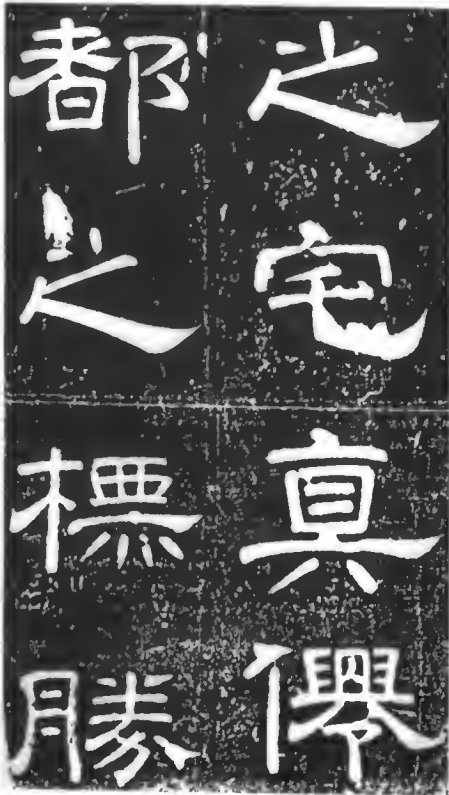 之宅真僊
都之標勝